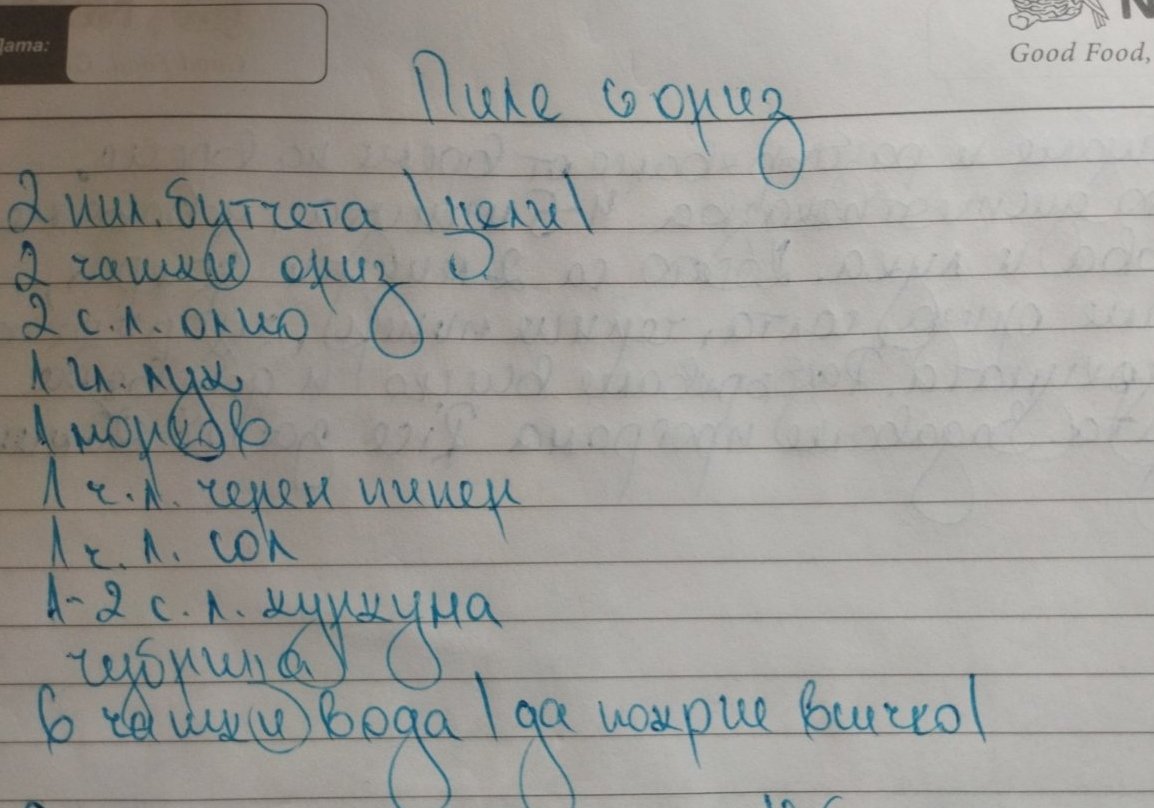 Дата:
Good Food,
Пиле с ориз
2 пил. бутчета /цели/
2 чашки ориз
2 с.л. олио
1 гл. лук
1 морков
1 ч.л. черен пипер
1 ч.л. сол
1-2 с.л. куркума
чубрица
6 чашки вода /да покрие всичко/